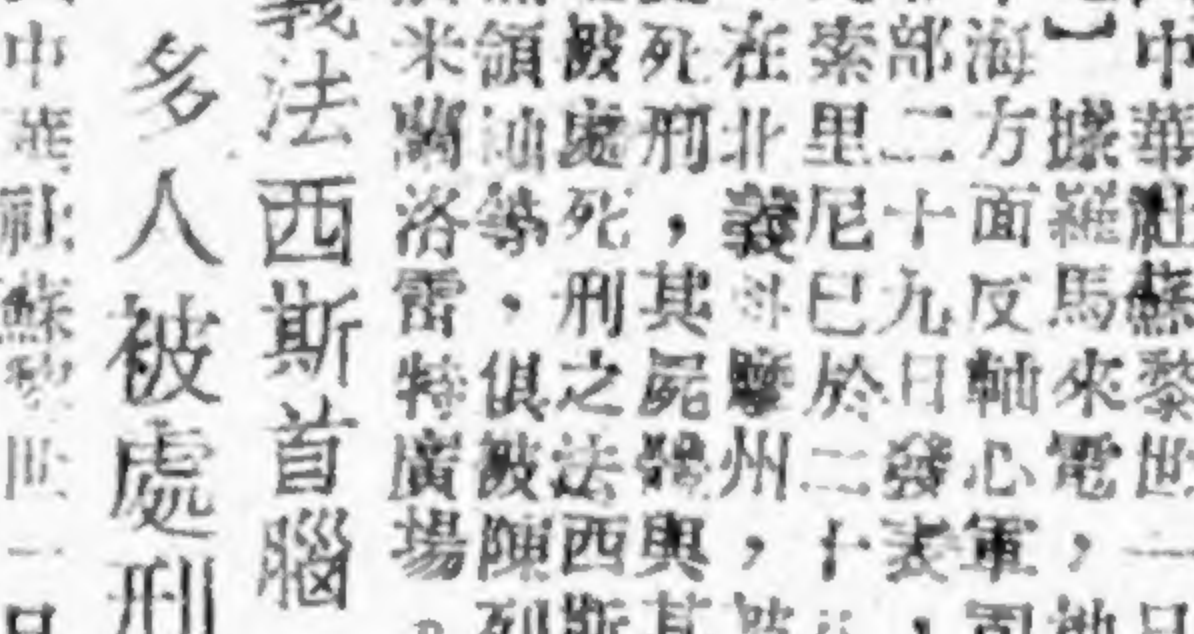 中華社蘇黎世一日
】據羅馬來電，地
海方面反軸心軍司
部二十九日發表，
索里尼已於二十八
在北義科摩州，被
死刑，其屍體與其
被處死刑之法西斯
領袖等・俱被陳列
米蘭洛雷特廣場。
義法西斯首腦
多人被處刑
中華社蘇黎世一日